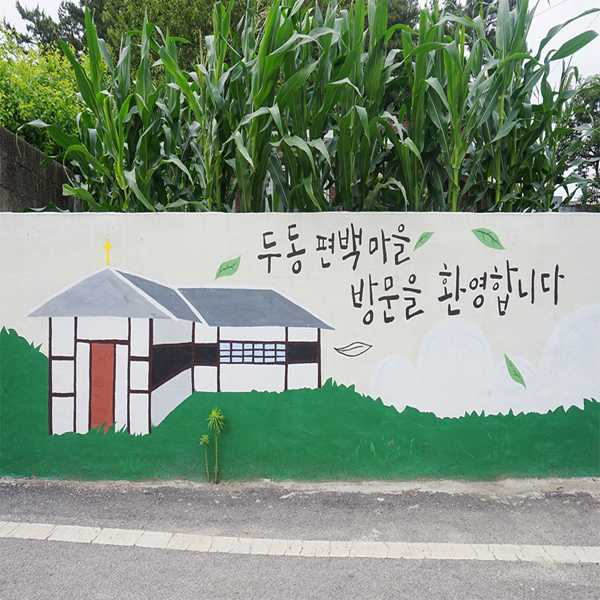 두동 편백마을
방문을 환영합니다